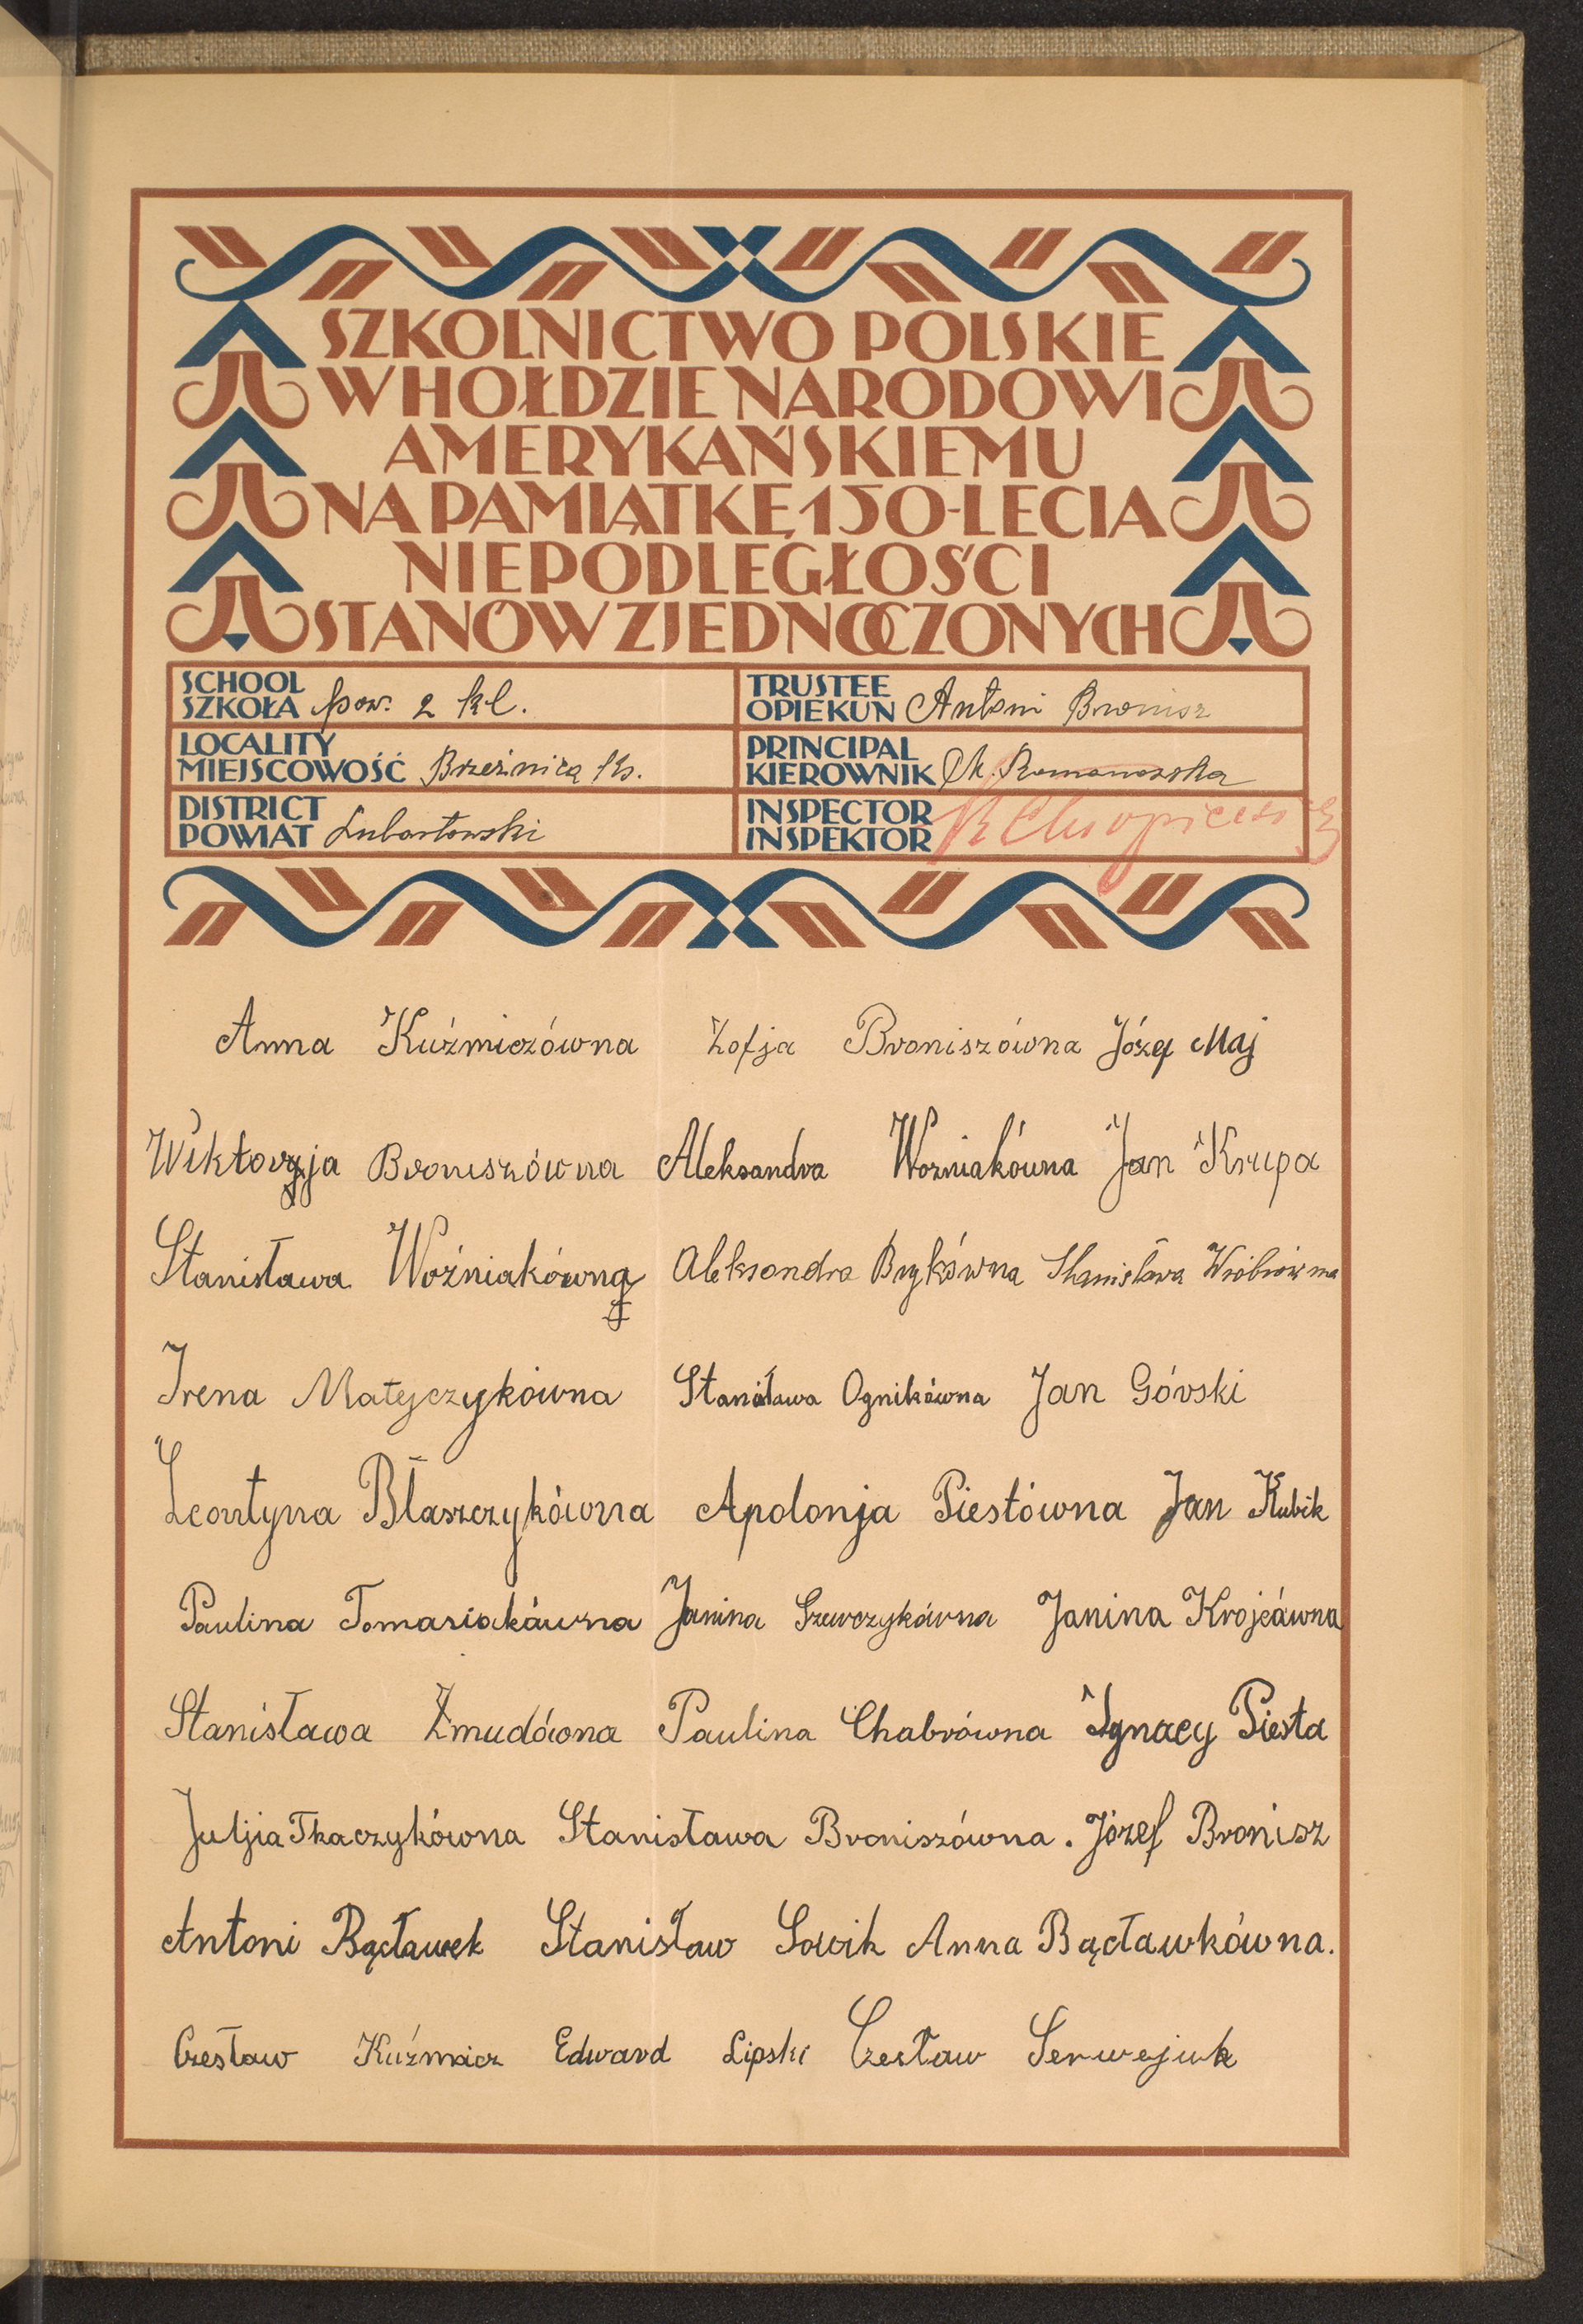 SZKOLNICTWO POLSKIE
W HOŁDZIE NARODOWI
AMERYKAŃSKIEMU
NA PAMIĄTKĘ 150-LECIA
NIEPODLEGŁOŚCI
STANÓW ZJEDNOCZONYCH
SCHOOL
SZKOŁA pow. 2 kl.
TRUSTEE
OPIEKUN Antoni Bronisz
LOCALITY
MIEJSCOWOŚĆ Brzeźnica Ks.
PRINCIPAL
KIEROWNIK Romanowska
DISTRICT
POWIAT Lubartowski
INSPECTOR
INSPEKTOR
Anna Kuźmiczówna Zofja Broniszówna Józef Maj
Wiktorja Broniszówna Aleksandra Wozniakówna Jan Krupa
Stanisława Woźniakówna Aleksandra Brykówna Stanisława Wróblówna
Irena Matejczykówna Stanisława Ognikówna Jan Górski
Leontyna Błaszczykówna Apolonja Piestówna Jan Kubik
Paulina Tomasiakówna Janina Szewczykówna Janina Krojcówna
Stanisława Żmudówna Paulina Chabrówna Ignacy Piesta
Juljia Tkaczykówna Stanisława Broniszówna. Józef Bronisz
Antoni Bącławek Stanisław Sowik Anna Bącławkówna.
Czesław Kuźmicz Edward Lipski Czesław Serwejuk